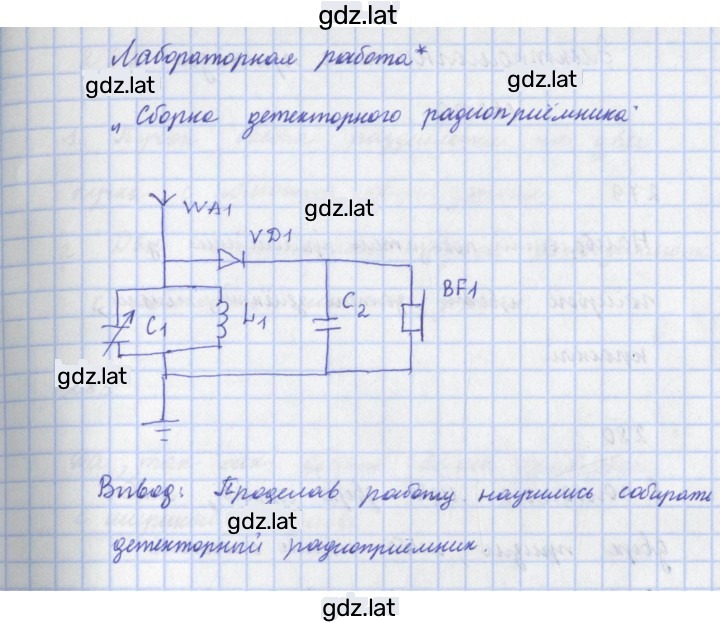 gdz.lat
Лабораторная работа*
gdz.lat
gdz.lat
„Сборка детекторного радиоприёмника"
gdz.lat
WA1
VD1
BF1
C1
L1
C2
gdz.lat
Вывод: Проделав работу научились собирать
gdz.lat
детекторный радиоприёмник.
gdz.lat